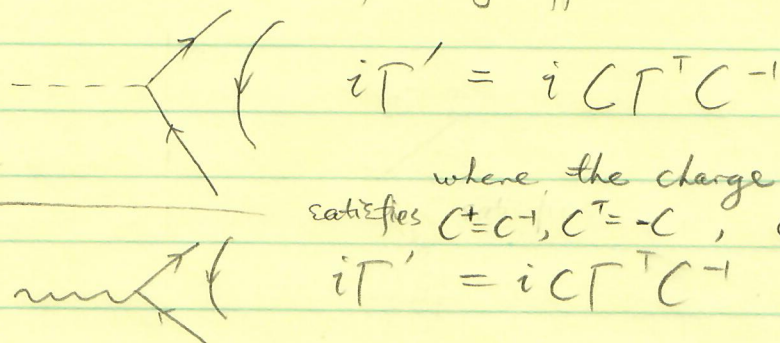 iΓ′ = i C Γᵀ C⁻¹
where the charge
satisfies C†=C⁻¹, Cᵀ= -C ,
iΓ′ = i C Γᵀ C⁻¹